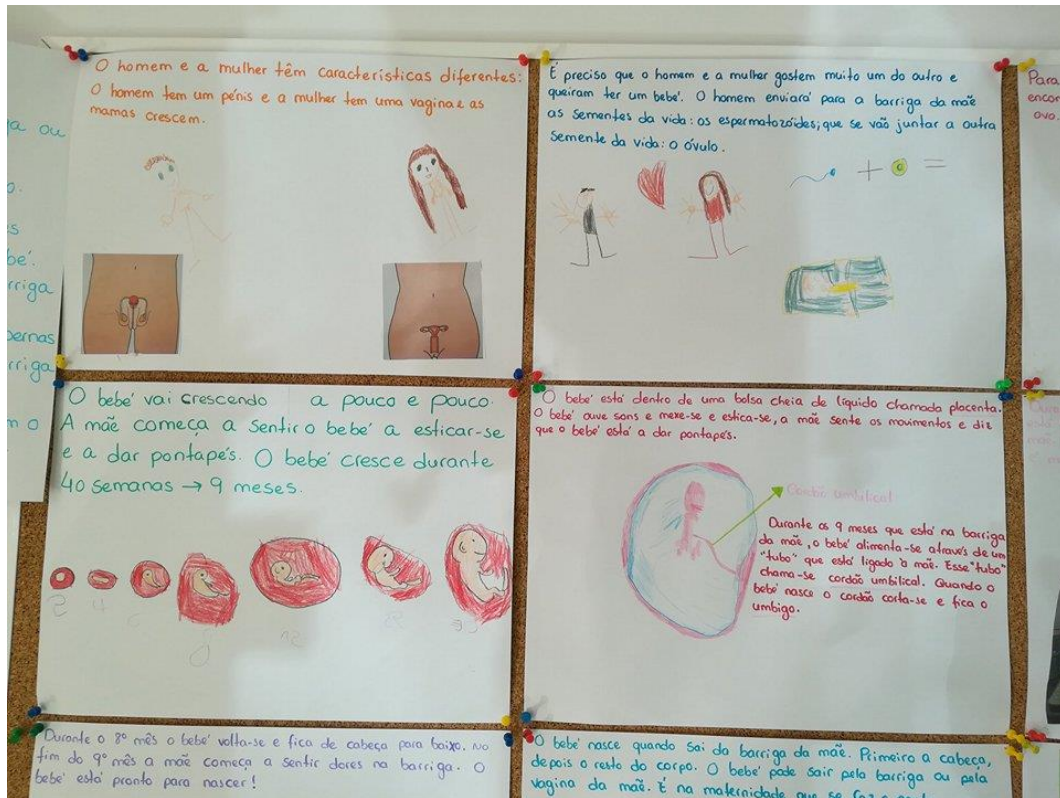 O homem e a mulher têm características diferentes:
O homem tem um pénis e a mulher tem uma vagina e as
mamas crescem.
É preciso que o homem e a mulher gostem muito um do outro e
queiram ter um bebé. O homem enviará para a barriga da mãe
as sementes da vida: os espermatozóides; que se vão juntar a outra
semente da vida: o óvulo.
+ =
Para
encon
ovo.
a ou
o.
s
bé.
rriga
pernas
rriga
m o
O bebé vai crescendo a pouco e pouco.
A mãe começa a sentir o bebé a esticar-se
e a dar pontapés. O bebé cresce durante
40 semanas → 9 meses.
2 4 6 8 12
O bebé está dentro de uma bolsa cheia de líquido chamada placenta.
O bebé ouve sons e mexe-se e estica-se, a mãe sente os movimentos e diz
que o bebé está a dar pontapés.
Cordão umbilical
Durante os 9 meses que está na barriga
da mãe, o bebé alimenta-se através de um
"tubo" que está ligado à mãe. Esse "tubo"
chama-se cordão umbilical. Quando o
bebé nasce o cordão corta-se e fica o
umbigo.
Durante o 8º mês o bebé volta-se e fica de cabeça para baixo. No
fim do 9º mês a mãe começa a sentir dores na barriga. O
bebé está pronto para nascer!
O bebé nasce quando sai da barriga da mãe. Primeiro a cabeça,
depois o resto do corpo. O bebé pode sair pela barriga ou pela
vagina da mãe. É na maternidade que se faz o